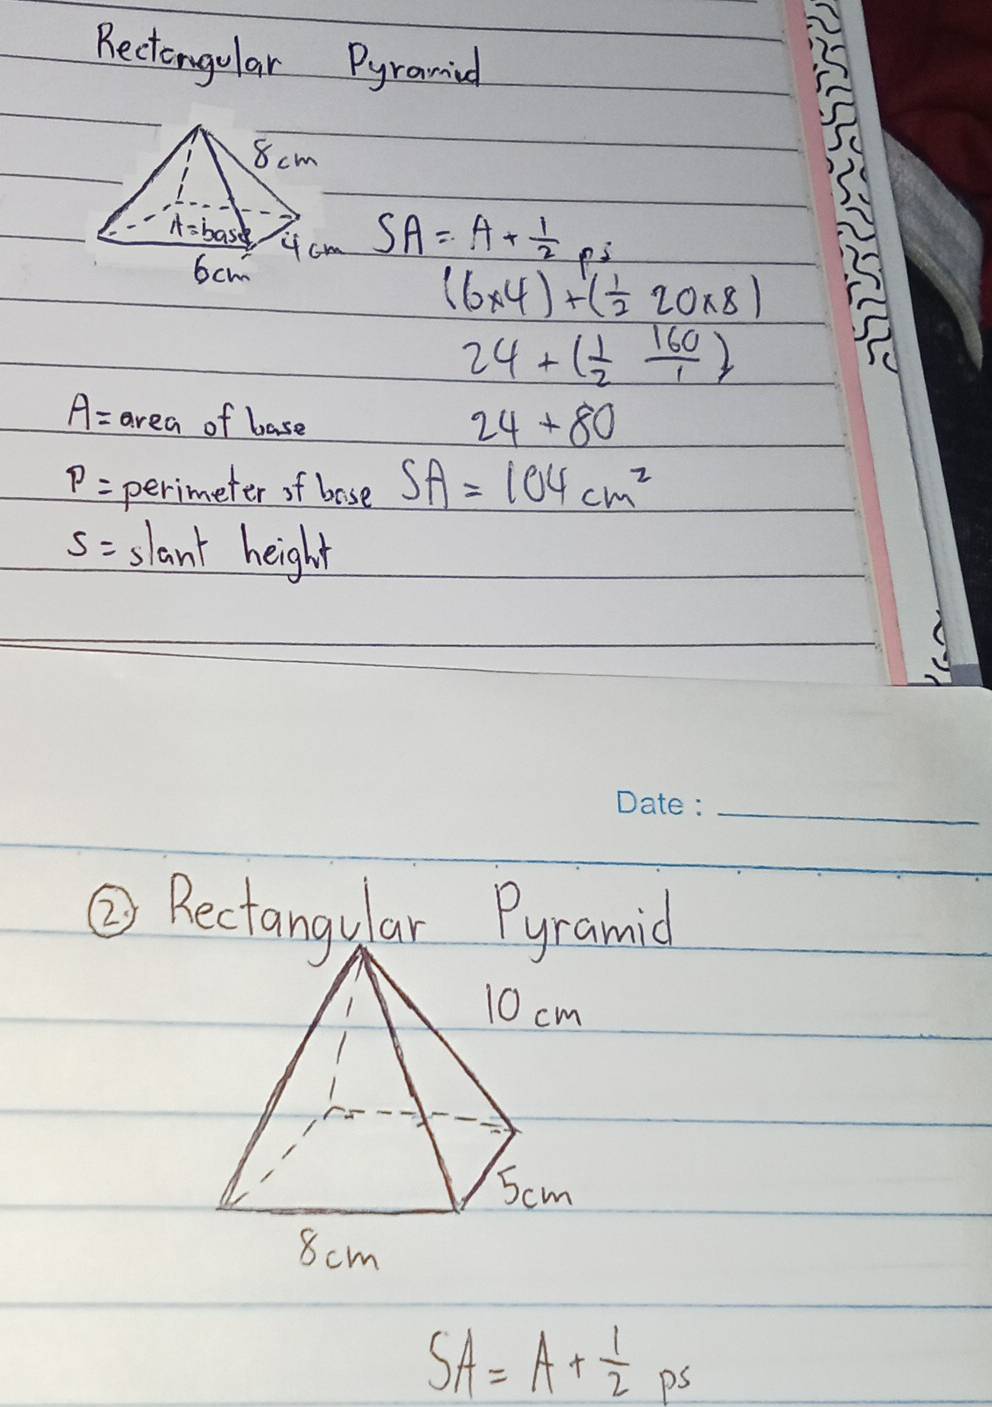 Rectangular Pyramid
8cm
A=base
4cm
6cm
SA = A + 1/2 ps
(6×4) + (1/2 20×8)
24 + (1/2 160/1)
24 + 80
SA = 104 cm²
A = area of base
P = perimeter of base
S = slant height
Date :
② Rectangular Pyramid
10 cm
5cm
8cm
SA = A + 1/2 ps